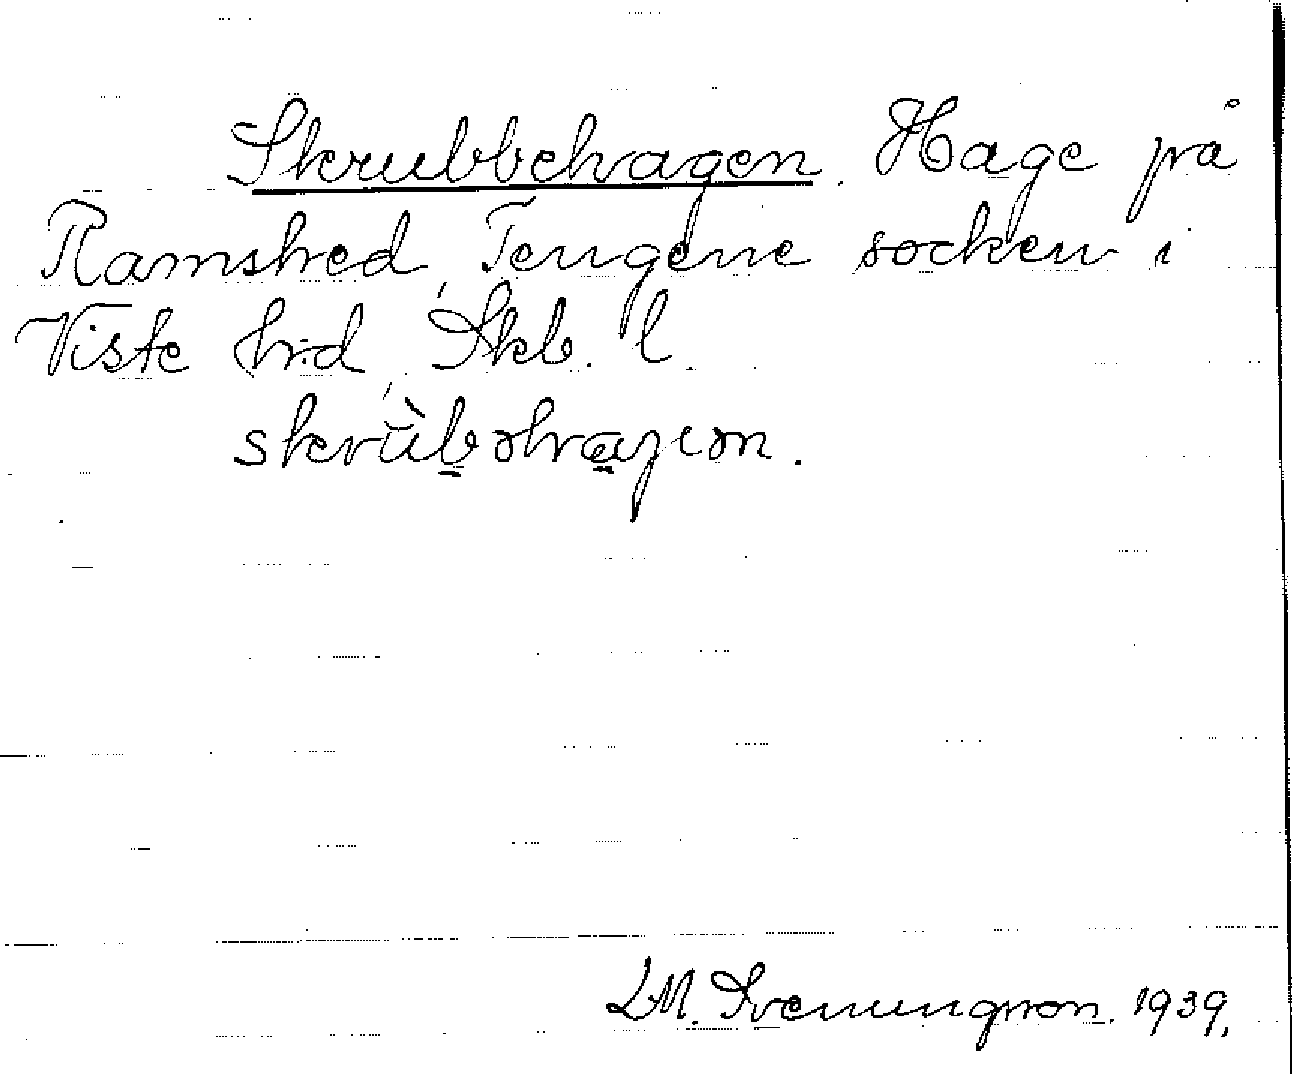 Skrubbehagen. Hage på
Ramshed, Tengene socken i
Viste hd, Skb. l.
L.M. Svenungsson. 1939.